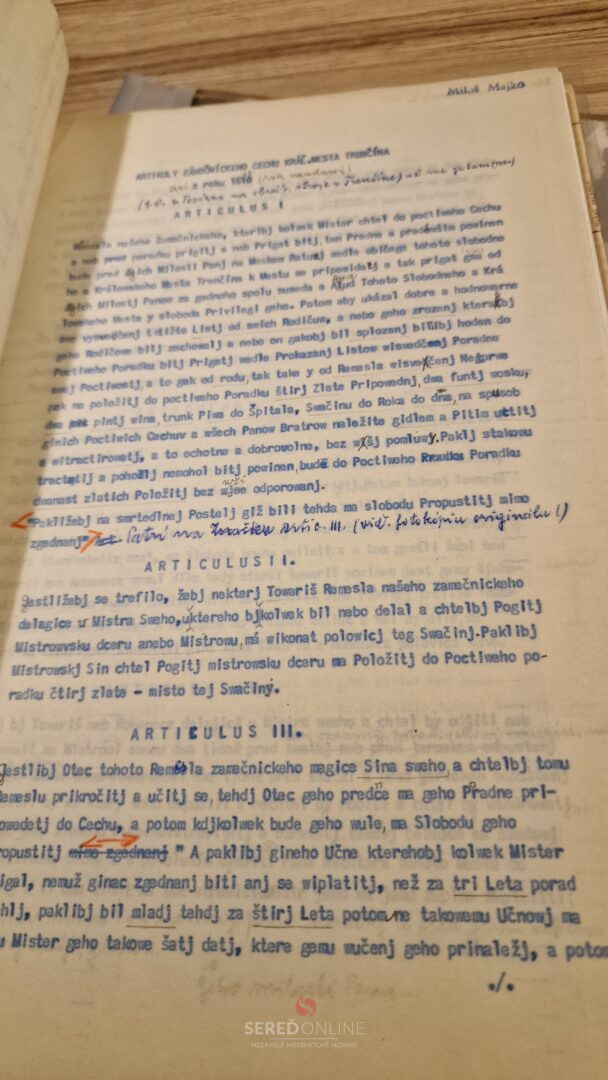 Miloš Majko
ARTIKULY ZÁMOČNÍCKEHO CECHU KRÁĽ.MESTA TRENČÍNA
z roku 1610
ARTICULUS I
našeho Zamečnickeho, kteribj kolwek Mister chtel do poctiweho Cechu
a neb poradku prigitj a neb Prigat bitj, ten Pradne a powinen
bude pred gjich Milosti Panj na Mestem Ratuzj wedle obličego tohoto slobodne
ho a Králowskeho Mesta Trenčina k Mestu se pripowidatj a tak prigat gsa od
gjich Milostj Panow za gednoho spolu suseda a Tohoto Slobodneho a Krá
lowskeho Mesta y sloboda Privilegi geho. Potom aby ukázal dobre a hodnowerne
wyswedčenj Listj od swich Rodičuw, a nebo geho zrozenj kterakbj
geho Rodičowe bilj zachowalj a nebo on gakobj bil splozenj bilibj hoden do
Poctiweho Poradku bitj Prigatj wedle Prokazanj Listow wiswedčenj Poradne
swej Poctiwostj, a to gak od rodu, tak take y od Remesla wiswedčenj Neprwe
pak ma položitj do poctiweho Poradku štirj Zlate Pripowednj, dwa funtj wosku,
dwa pintj wina, trunk Piwa do Špitala, Swačinu do Roka do dňa, na spusob
ginich Poctiwich Cechuv a wšech Panow Bratrow naležite gidlem a Pitim uctitj
a witractirowatj, a to ochotne a dobrowolne, bez wššj pomluwy. Paklj stakowu
tractatij a pohodlj nemohol bitj powinen, bude do Poctiweho Poradku
dwanast zlatich Položitj bez wšj odporowanj.
"Pakližebj na smrtedlnej Postelj giž bili tehda ma slobodu Propustitj mimo
zgednanj" Patrí na Artic. III. (viď. fotokópiu originálu!)
ARTICULUS II.
Gestližebj se trefilo, žebj nekterj Towariš Remesla našeho zamečnickeho
delagice u Mistra Sweho, uktereho bjkolwek bil nebo delal a chtelbj Pogitj
Mistrowsku dceru anebo Mistrowu, má wikonat polowicj teg Swačinj. Paklibj
Mistrowskj Sin chtel Pogitj mistrowsku dceru ma Položitj do Poctiweho po-
radku čtirj zlate - misto tej Swačiny.
ARTICULUS III.
Gestlibj Otec tohoto Remesla zamečnickeho magice Sina sweho, a chtelbj tomu
Remeslu prikročitj a učitj se, tehdj Otec geho predče ma geho Pradne pri-
owedetj do Cechu, a potom kdjkolwek bude geho wule, ma Slobodu geho
ropustitj mimo zgednanj " A paklibj gineho Učne kterehobj kolwek Mister
igal, nemuž ginac zgednanj biti anj se wiplatitj, než za tri Leta porad
hlj, paklibj bil mladj tehdj za štirj Leta potomne takowemu Učnowj ma
u Mister geho takowe šatj datj, ktere gemu wučenj geho prinaležj, a potom
./.
SEREĎ ONLINE
NEZÁVISLÉ INTERNETOVÉ NOVINY